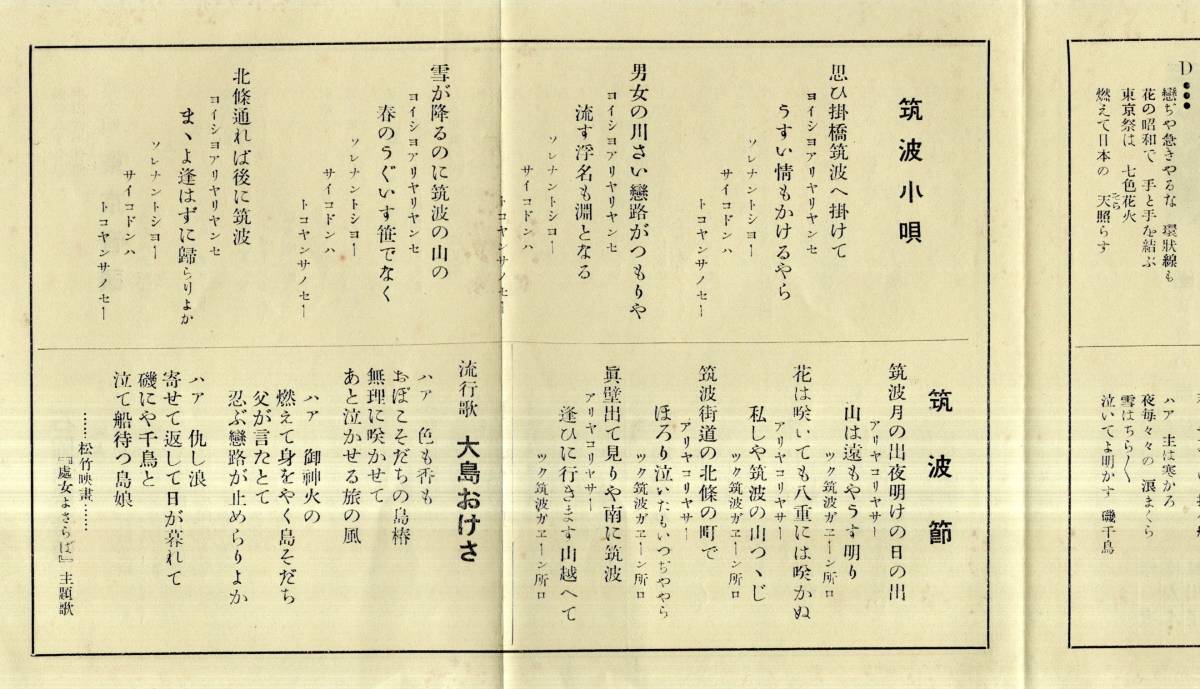 D
戀ぢや急きやるな 環狀線も
花の昭和で 手と手を結ぶ
東京祭は 七色花火
燃えて日本の 天照らす
そら
ハア 主は寒かろ
夜每々々の 淚まくら
雪はちら〱
泣いてよ明かす 磯千鳥
筑波小唄
思ひ掛橋筑波へ掛けて
ヨイシヨアリヤリヤンセ
うすい情もかけるやら
ソレナントシヨー
サイコドンハ
トコヤンサノセー
男女の川さい戀路がつもりや
ヨイシヨアリヤリヤンセ
流す浮名も淵となる
ソレナントシヨー
サイコドンハ
トコヤンサノセー
雪が降るのに筑波の山の
ヨイシヨアリヤリヤンセ
春のうぐいす笹でなく
ソレナントシヨー
サイコドンハ
トコヤンサノセー
北條通れば後に筑波
ヨイシヨアリヤリヤンセ
まゝよ逢はずに歸らりよか
ソレナントシヨー
サイコドンハ
トコヤンサノセー
筑波節
筑波月の出夜明けの日の出
アリヤコリヤサー
山は遠もやうす明り
ツク筑波ガエーン所ロ
花は咲いても八重には咲かぬ
アリヤコリヤサー
私しや筑波の山つゝじ
ツク筑波ガエーン所ロ
筑波街道の北條の町で
アリヤコリヤサー
ほろり泣いたもいつぢややら
ツク筑波ガエーン所ロ
眞壁出て見りや南に筑波
アリヤコリヤサー
逢ひに行きます山越へて
ツク筑波ガエーン所ロ
流行歌 大島おけさ
ハア 色も香も
おぼこそだちの島椿
無理に咲かせて
あと泣かせる旅の風
ハア 御神火の
燃えて身をやく島そだち
父が言たとて
忍ぶ戀路が止めらりよか
ハア 仇し浪
寄せて返して日が暮れて
磯にや千鳥と
泣て船待つ島娘
……松竹映畫……
『處女よさらば』主題歌